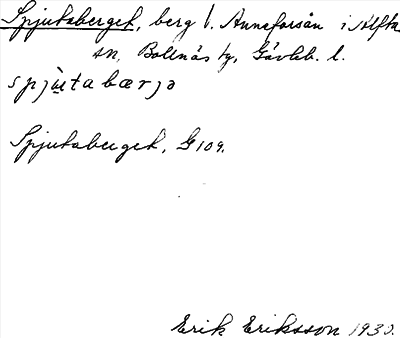 Spjutaberget, berg v. Annaforsån i Alfta
sn, Bollnäs tg, Gävleb. l.
spjùtabærjə
Spjutaberget, G 109.
Erik Eriksson 1930.